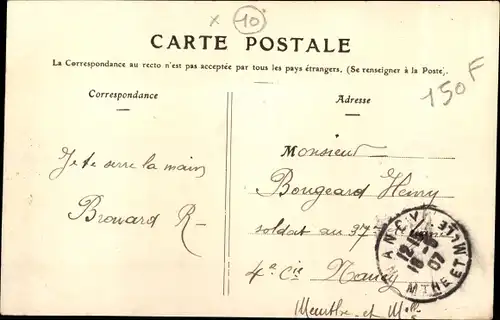 x 10
CARTE POSTALE
La Correspondance au recto n'est pas acceptée par tous les pays étrangers. (Se renseigner à la Poste).
150F
Correspondance
Je te serre la main
Broward R
Adresse
Monsieur
Bougeard Henry
soldat au 37
4e Cie Nancy
Meurthe et M
NANCY
MTHE ET MLLE
07